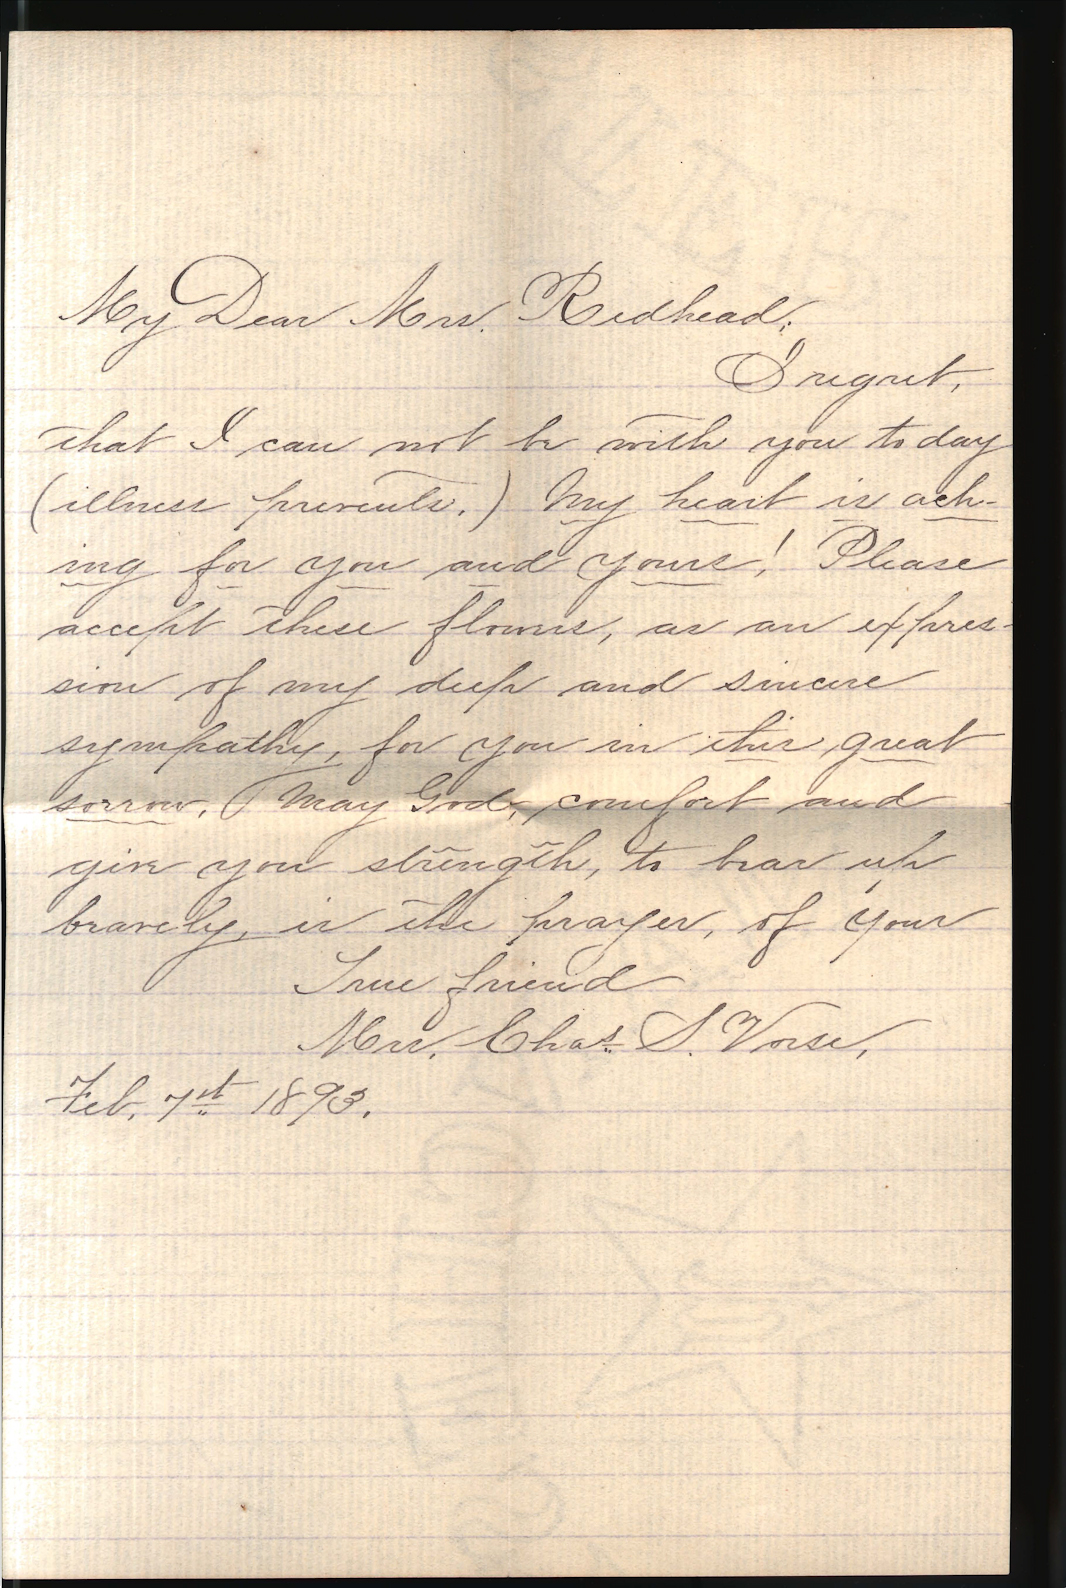 My Dear Mrs. Redhead;
I regret,
that I can not be with you to day
(illness prevents.) My heart is ach-
ing for you and yours! Please
accept these flowers, as an expres-
sion of my deep and sincere
sympathy, for you in this great
sorrow. May God, comfort and
give you strength, to bear up
bravely, is the prayer, of your
True friend
Mrs. Chas. S. Vorse,
Feb. 7st 1893.